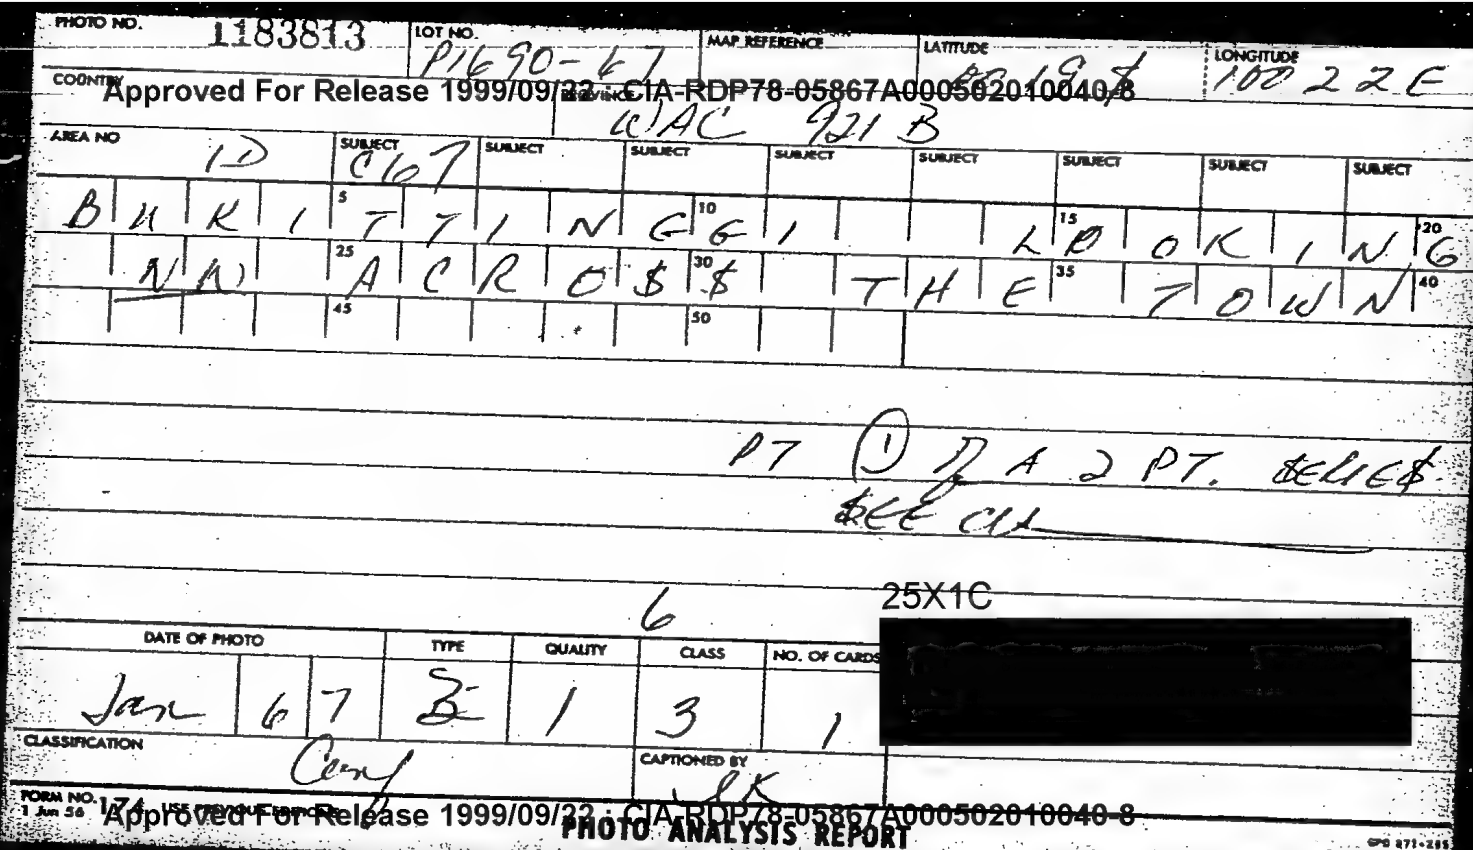 PHOTO NO. 1183813 LOT NO. P1690-67 MAP REFERENCE LATITUDE 00 19 $ LONGITUDE 100 22 E
COUNTRY
Approved For Release 1999/09/22 : CIA-RDP78-05867A000502010040-8
WAC 921 B
AREA NO 1D SUBJECT C167 SUBJECT SUBJECT SUBJECT SUBJECT SUBJECT SUBJECT SUBJECT
5 10 15 20
BUKITTINGGI LOOKING
25 30 35 40
NW ACRO$$ THE TOWN
45 50
PT ① OF A 2 PT. $ERIE$.
$EE
25X1C
6
DATE OF PHOTO TYPE QUALITY CLASS NO. OF CARDS
Jan 67 B 1 3 1
CLASSIFICATION Conf CAPTIONED BY
FORM NO. 174 USE PREVIOUS EDITIONS
1 Jun 56
Approved For Release 1999/09/22 : CIA-RDP78-05867A000502010040-8
PHOTO ANALYSIS REPORT